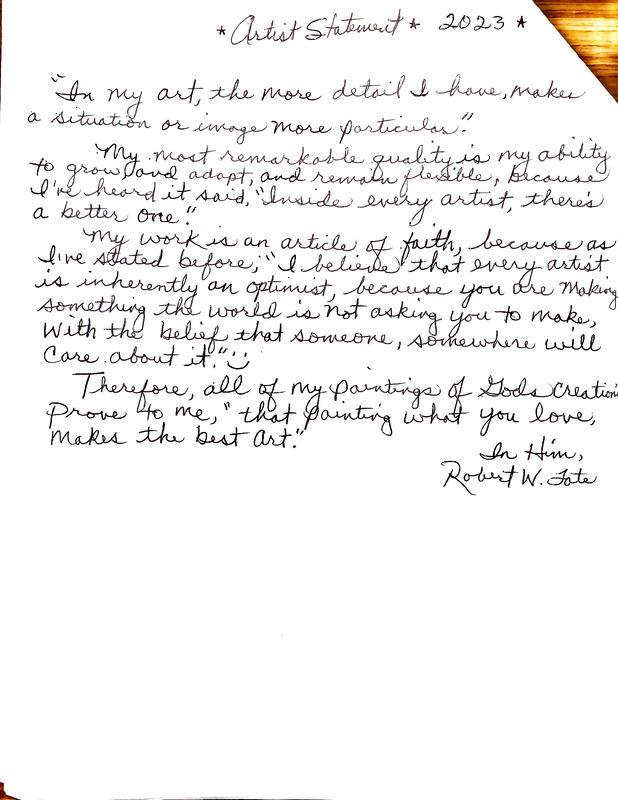 * Artist Statement * 2023 *
"In my art, the more detail I have, makes
a situation or image more particular."
My most remarkable quality is my ability
to grow, and adapt, and remain flexible, because
I've heard it said, "Inside every artist, there's
a better one."
My work is an article of faith, because as
I've stated before, "I believe that every artist
is inherently an optimist, because you are making
something the world is not asking you to make,
with the belief that someone, somewhere will
care about it."
Therefore, all of my paintings of Gods creation
prove to me, "that painting what you love,
makes the best art."
In Him,
Robert W.